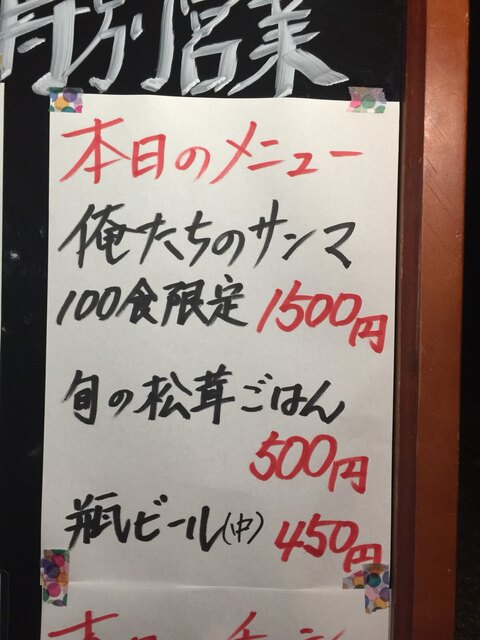 特別営業
本日のメニュー
俺たちのサンマ
100食限定 1500円
旬の松茸ごはん
500円
瓶ビール(中) 450円